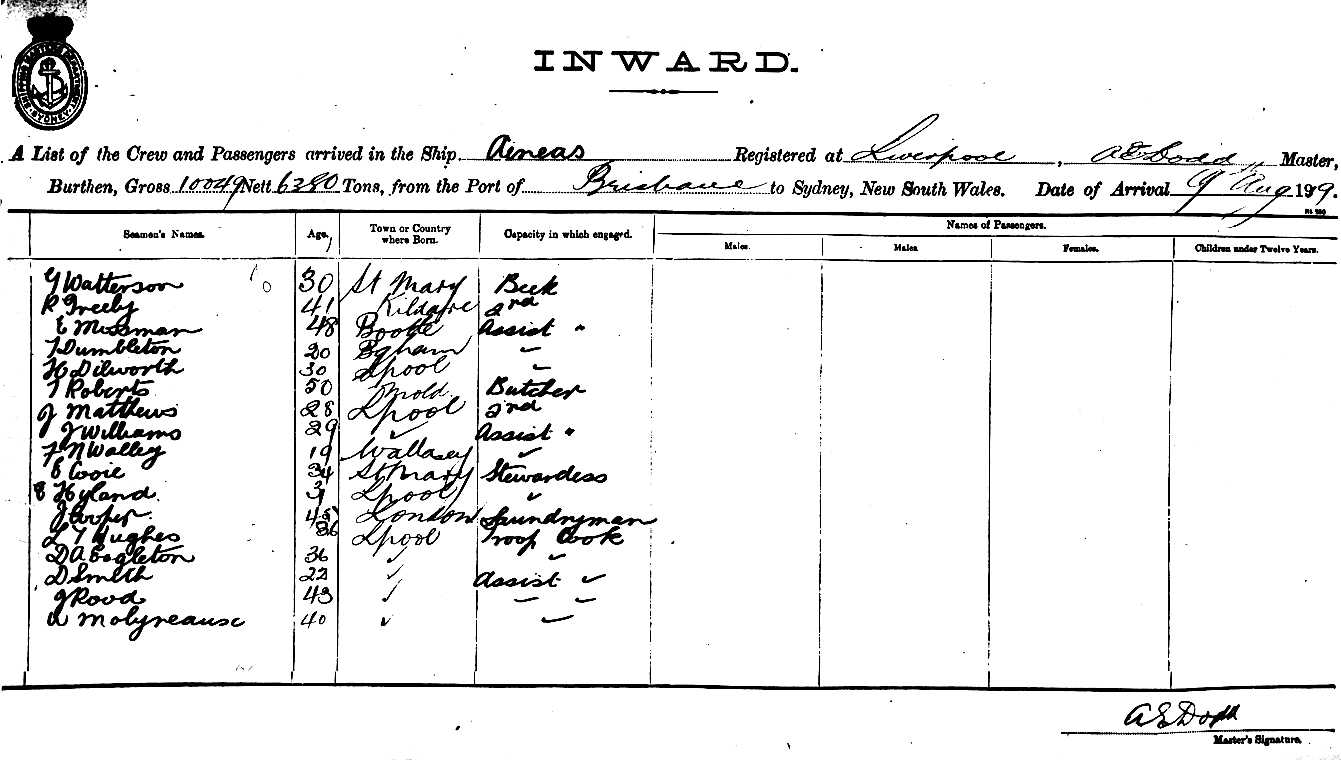 SHIPPING MASTER'S DEPARTMENT SYDNEY
INWARD.
A List of the Crew and Passengers arrived in the Ship Aeneas Registered at Liverpool, A E Dodd, Master,
Burthen, Gross 10049 Nett 6280 Tons, from the Port of Brisbane to Sydney, New South Wales. Date of Arrival 9 Aug 1919.
Seamen's Names. Age. Town or Country where Born. Capacity in which engaged. Names of Passengers.
Males. Males. Females. Children under Twelve Years.
G Watterson 30 St Mary
R Greely 41 Kildare 2nd
E Mossman 48 Bootle Assist "
T Dumbleton 20 ✓
H Dilworth 30 Lpool ✓
T Roberts 50 Mold Butcher
J Matthews 28 Lpool 2nd
J Williams 29 ✓ Assist "
F N Walley 19 Wallasey ✓
E 34 St Mary Stewardess
E Hyland Lpool ✓
J Cooper 45 London Laundryman
L T Hughes 36 Lpool Troop Cook
D A Eagleton 36 ✓ ✓
D Smith 22 ✓ Assist ✓
J Rood 43 ✓ ✓ ✓
Molyneause 40 ✓ ✓
A E Dodd
Master's Signature.